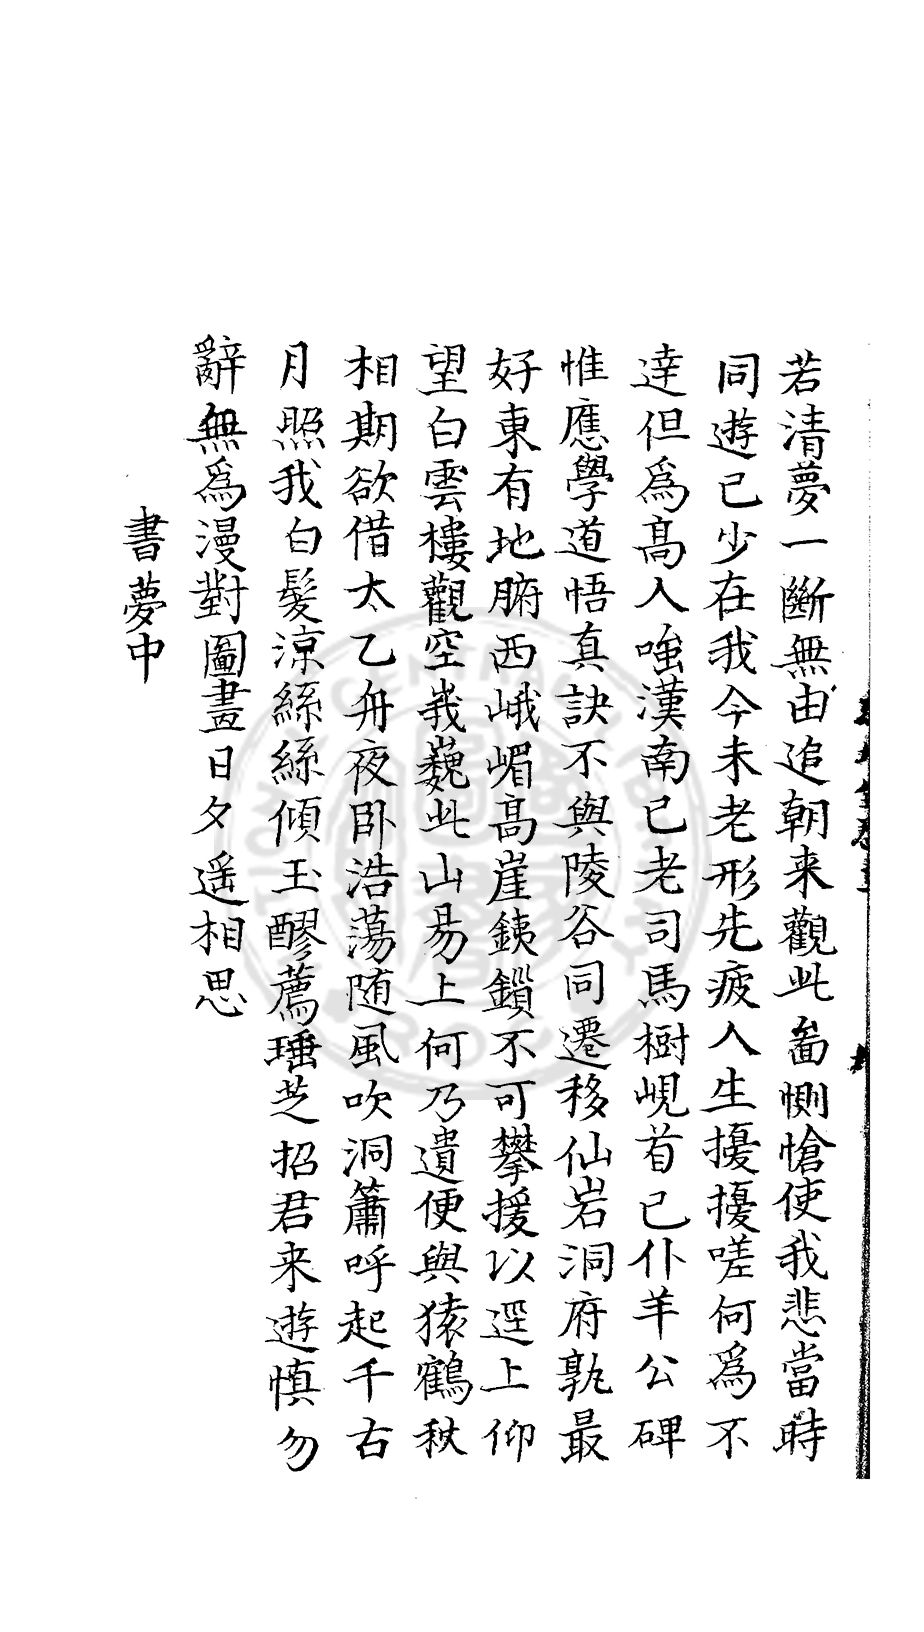 若清夢一斷無由追朝来觀此畗惻愴使我悲當時
同遊已少在我今未老形先疲人生擾擾嗟何為不
達但為高人嗤漢南已老司馬樹峴首已仆羊公碑
惟應學道悟真訣不與陵谷同遷移仙岩洞府孰最
好東有地腑西峨嵋高崖銕鎖不可攀援以逕上仰
望白雲樓觀空峩巍此山昜上何乃遺便與猿鶴秋
相期欲借太乙舟夜卧浩蕩随風吹洞簫呼起千右
月照我白髮涼絲絲傾玉醪薦瑶芝招君来遊慎勿
辭無為漫對圖畫日夕遥相思
書夢中